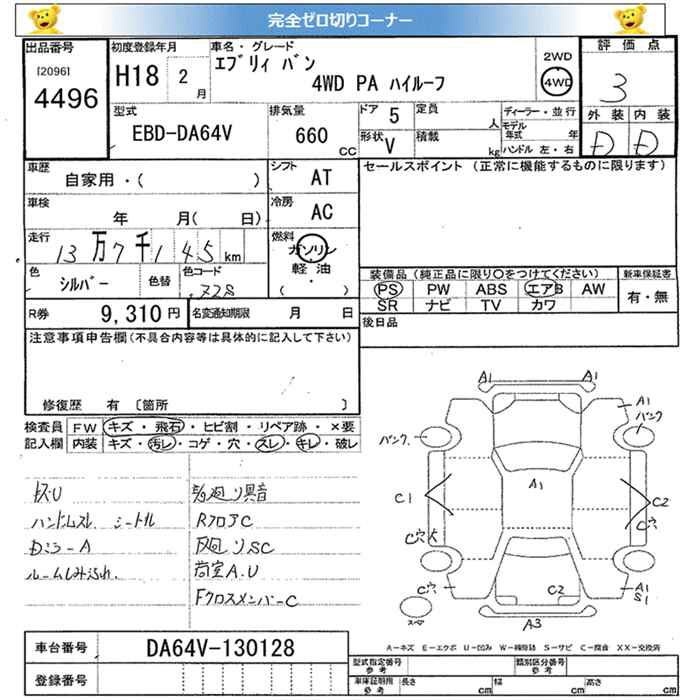 完全ゼロ切りコーナー
出品番号
[2096]
4496
初度登録年月
H18 2 月
車名・グレード
エブリィ バン
4WD PA ハイルーフ
2WD
4WD
評価点
3
外装 内装
D D
型式
EBD-DA64V
排気量
660 cc
ドア 5
形状 V
定員 人
積載 kg
ディーラー・並行
モデル年式 年
ハンドル 左・右
車歴
自家用・( )
シフト AT
車検
年 月( 日)
冷房 AC
走行
13万7千145 km
燃料
ガソリン
軽油
( ・ )
色
シルバー
色替
色コード
セールスポイント (正常に機能するものに限ります)
装備品(純正品に限り○をつけてください)
PS PW ABS エアB AW
SR ナビ TV カワ
新車保証書
有・無
R券 9,310円
名変通知期限 月 日
後日品
注意事項申告欄(不具合内容等は具体的に記入して下さい)
修復歴 有 〔箇所 〕
検査員記入欄
FW キズ・飛石・ヒビ割・リペア跡・×要
内装 キズ・汚レ・コゲ・穴・スレ・キレ・破レ
RフロアC
荷室A.U
FクロスメンバーC
A1 A1
A1
バンク
バンク
A1
C1
C2
C穴
C穴
C穴
C2
A1
S1
スペア
A3
A-キズ E-エクボ U-凹ミ W-補修跡 S-サビ C-腐食 XX-交換済
車台番号 DA64V-130128
登録番号
型式指定番号 参考
類別区分番号 参考
車庫証明用 参考
長さ cm
幅 cm
高さ cm